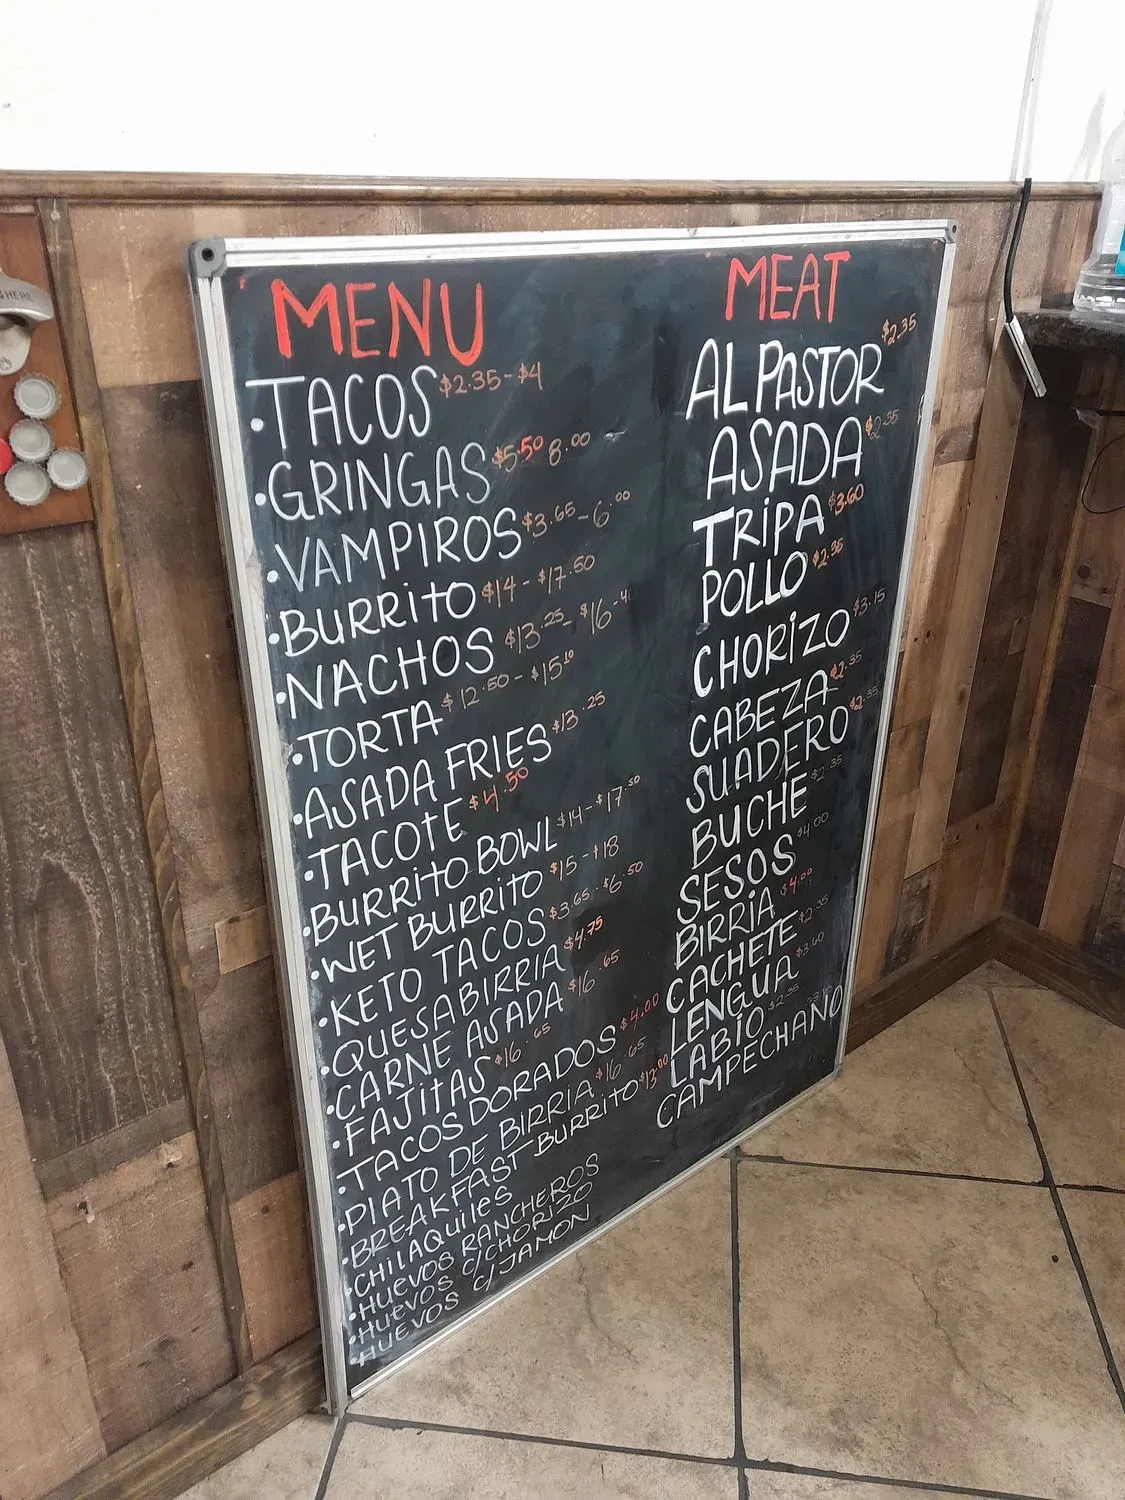 MENU
TACOS $2.35-$4
GRINGAS $5.50 8.00
VAMPIROS $3.65-6.00
BURRiTO $14-$17.50
NACHOS $13.25-$16-40
TORTA $12.50-$15.10
ASADA FRIES $13.25
TACOtE $4.50
BURRiTO BOWL $14-$17.50
WET BURRITO $15-$18
KETO TACOS $3.65-$6.50
QUESABIRRIA $4.75
CARNE ASADA $16.65
FAJitAS $16.65
TACOS DORADOS $4.00
PlATO DE BIRRIA $16.65
BREAKFAST BURRITO $13.00
CHilAQUilES
HUEVOS RANCHEROS
HUEVOS C/CHORIZO
HUEVOS C/JAMON
MEAT
AL PASTOR $2.35
ASADA $2.35
TRiPA $3.60
POLLO $2.35
CHORiZO $3.15
CABEZA $2.35
SUADERO $2.35
BUCHE $2.35
SESOS $4.00
BIRRIA $4.00
CACHETE $2.35
LENGUA $3.60
LABIO $2.35
CAMPECHANO
HERE